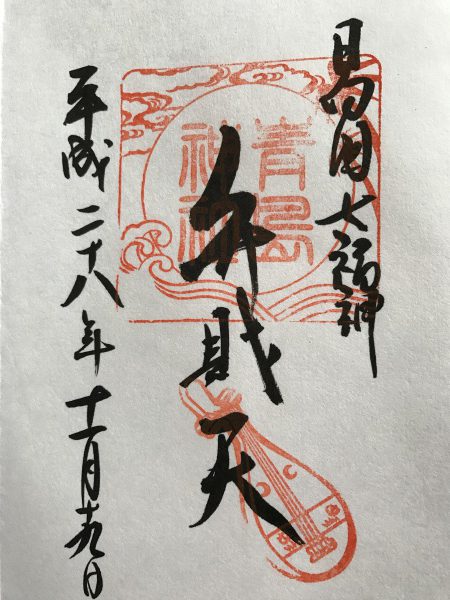 日向国七福神
青島
神社
弁財天
平成二十八年十一月十九日